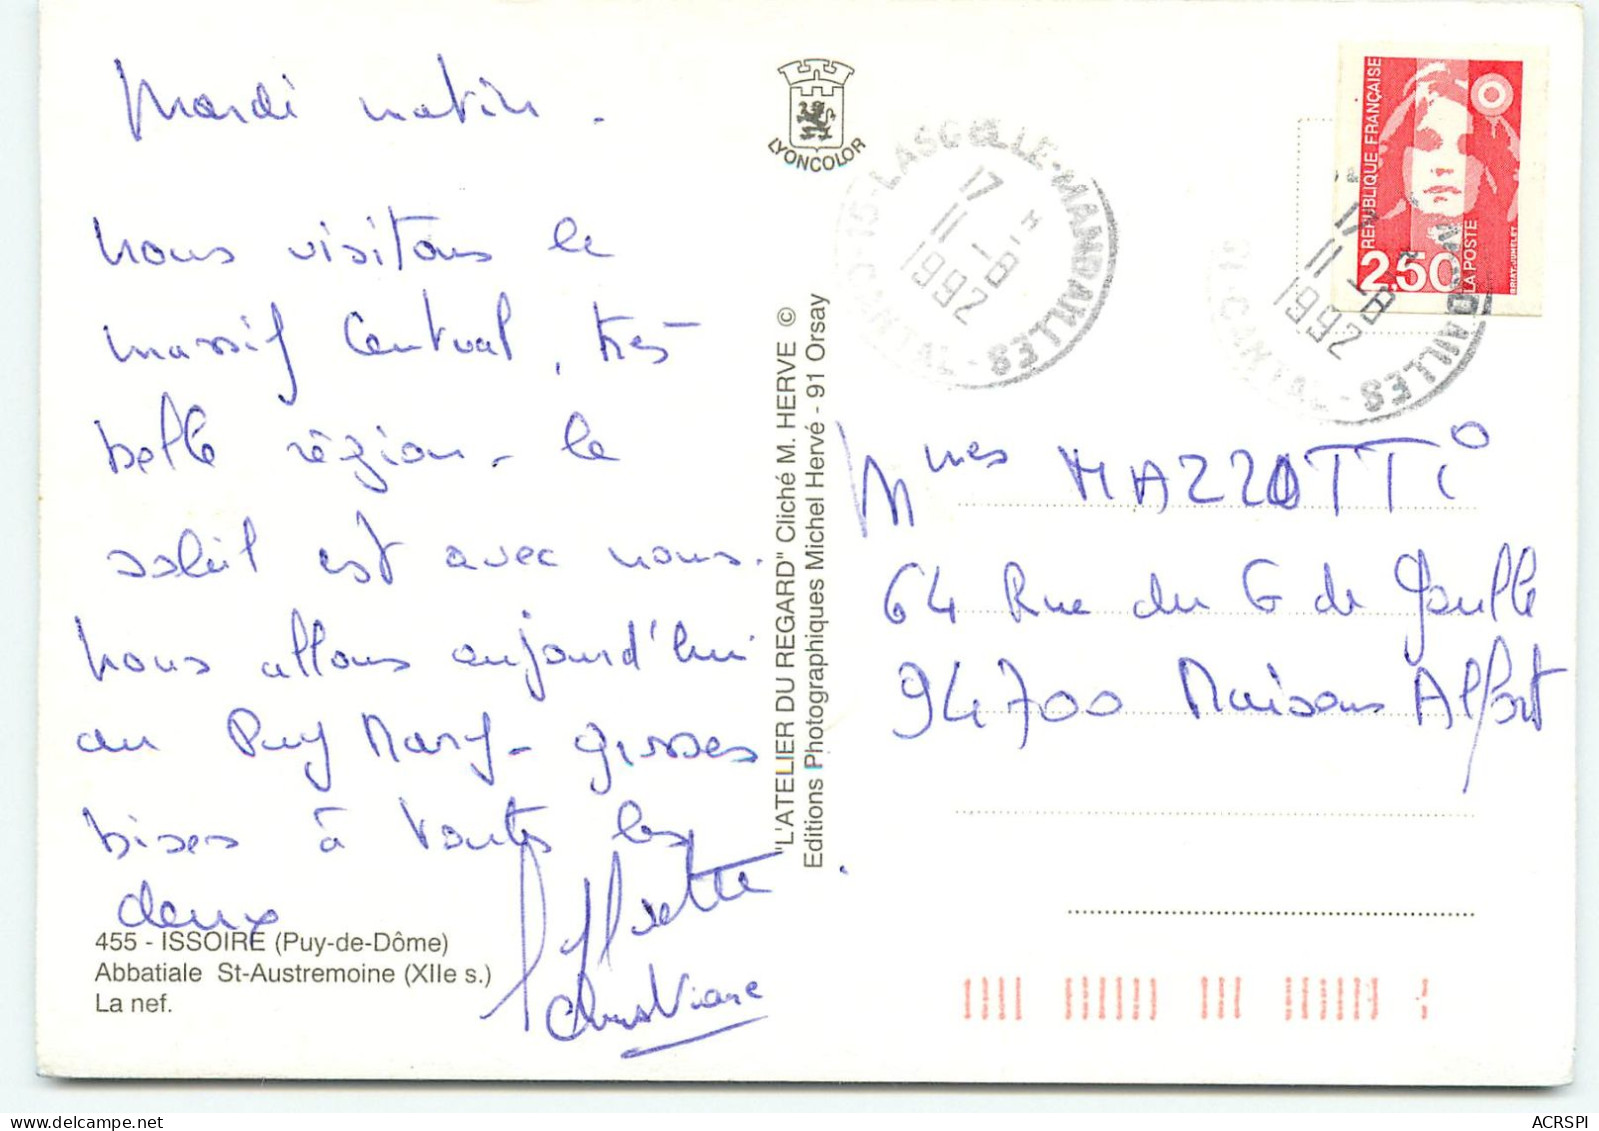 Mardi matin.
nous visitons le
massif Central, très
belle région - le
soleil est avec nous.
nous allons aujourd'hui
au Puy Mary - grosses
bises à toutes les
deux
Christiane
455 - ISSOIRE (Puy-de-Dôme)
Abbatiale St-Austremoine (XIIe s.)
La nef.
LYONCOLOR
"L'ATELIER DU REGARD" Cliché M. HERVE ©
Editions Photographiques Michel Hervé - 91 Orsay
15-LASCELLE-MANDAILLES-CANTAL
17 H
11 -8
1992
REPUBLIQUE FRANÇAISE
2,50
LA POSTE
BRIAT-JUMELET
17 H
11 -8
1992
MANDAILLES-CANTAL
Mmes MAZZOTTI
64 Rue du G de Gaulle
94700 Maisons Alfort
ACRSPI